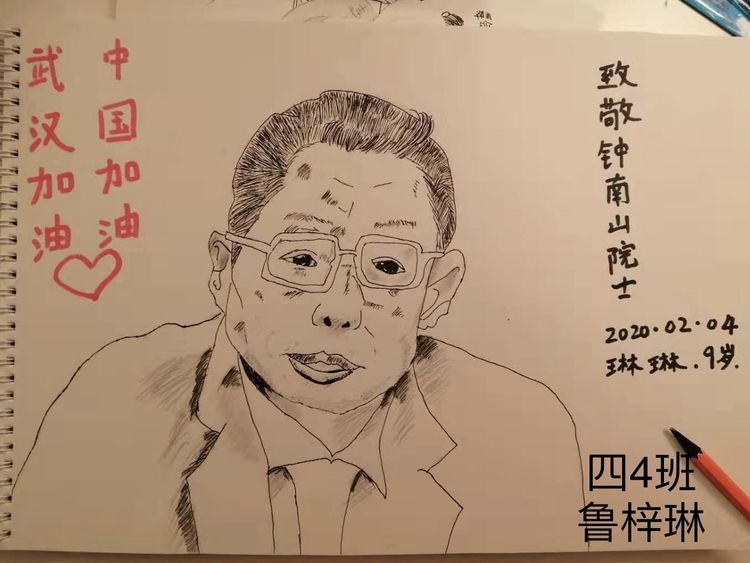 中国加油
武汉加油
致敬钟南山院士
2020.02.04
琳琳.9岁.
四4班
鲁梓琳